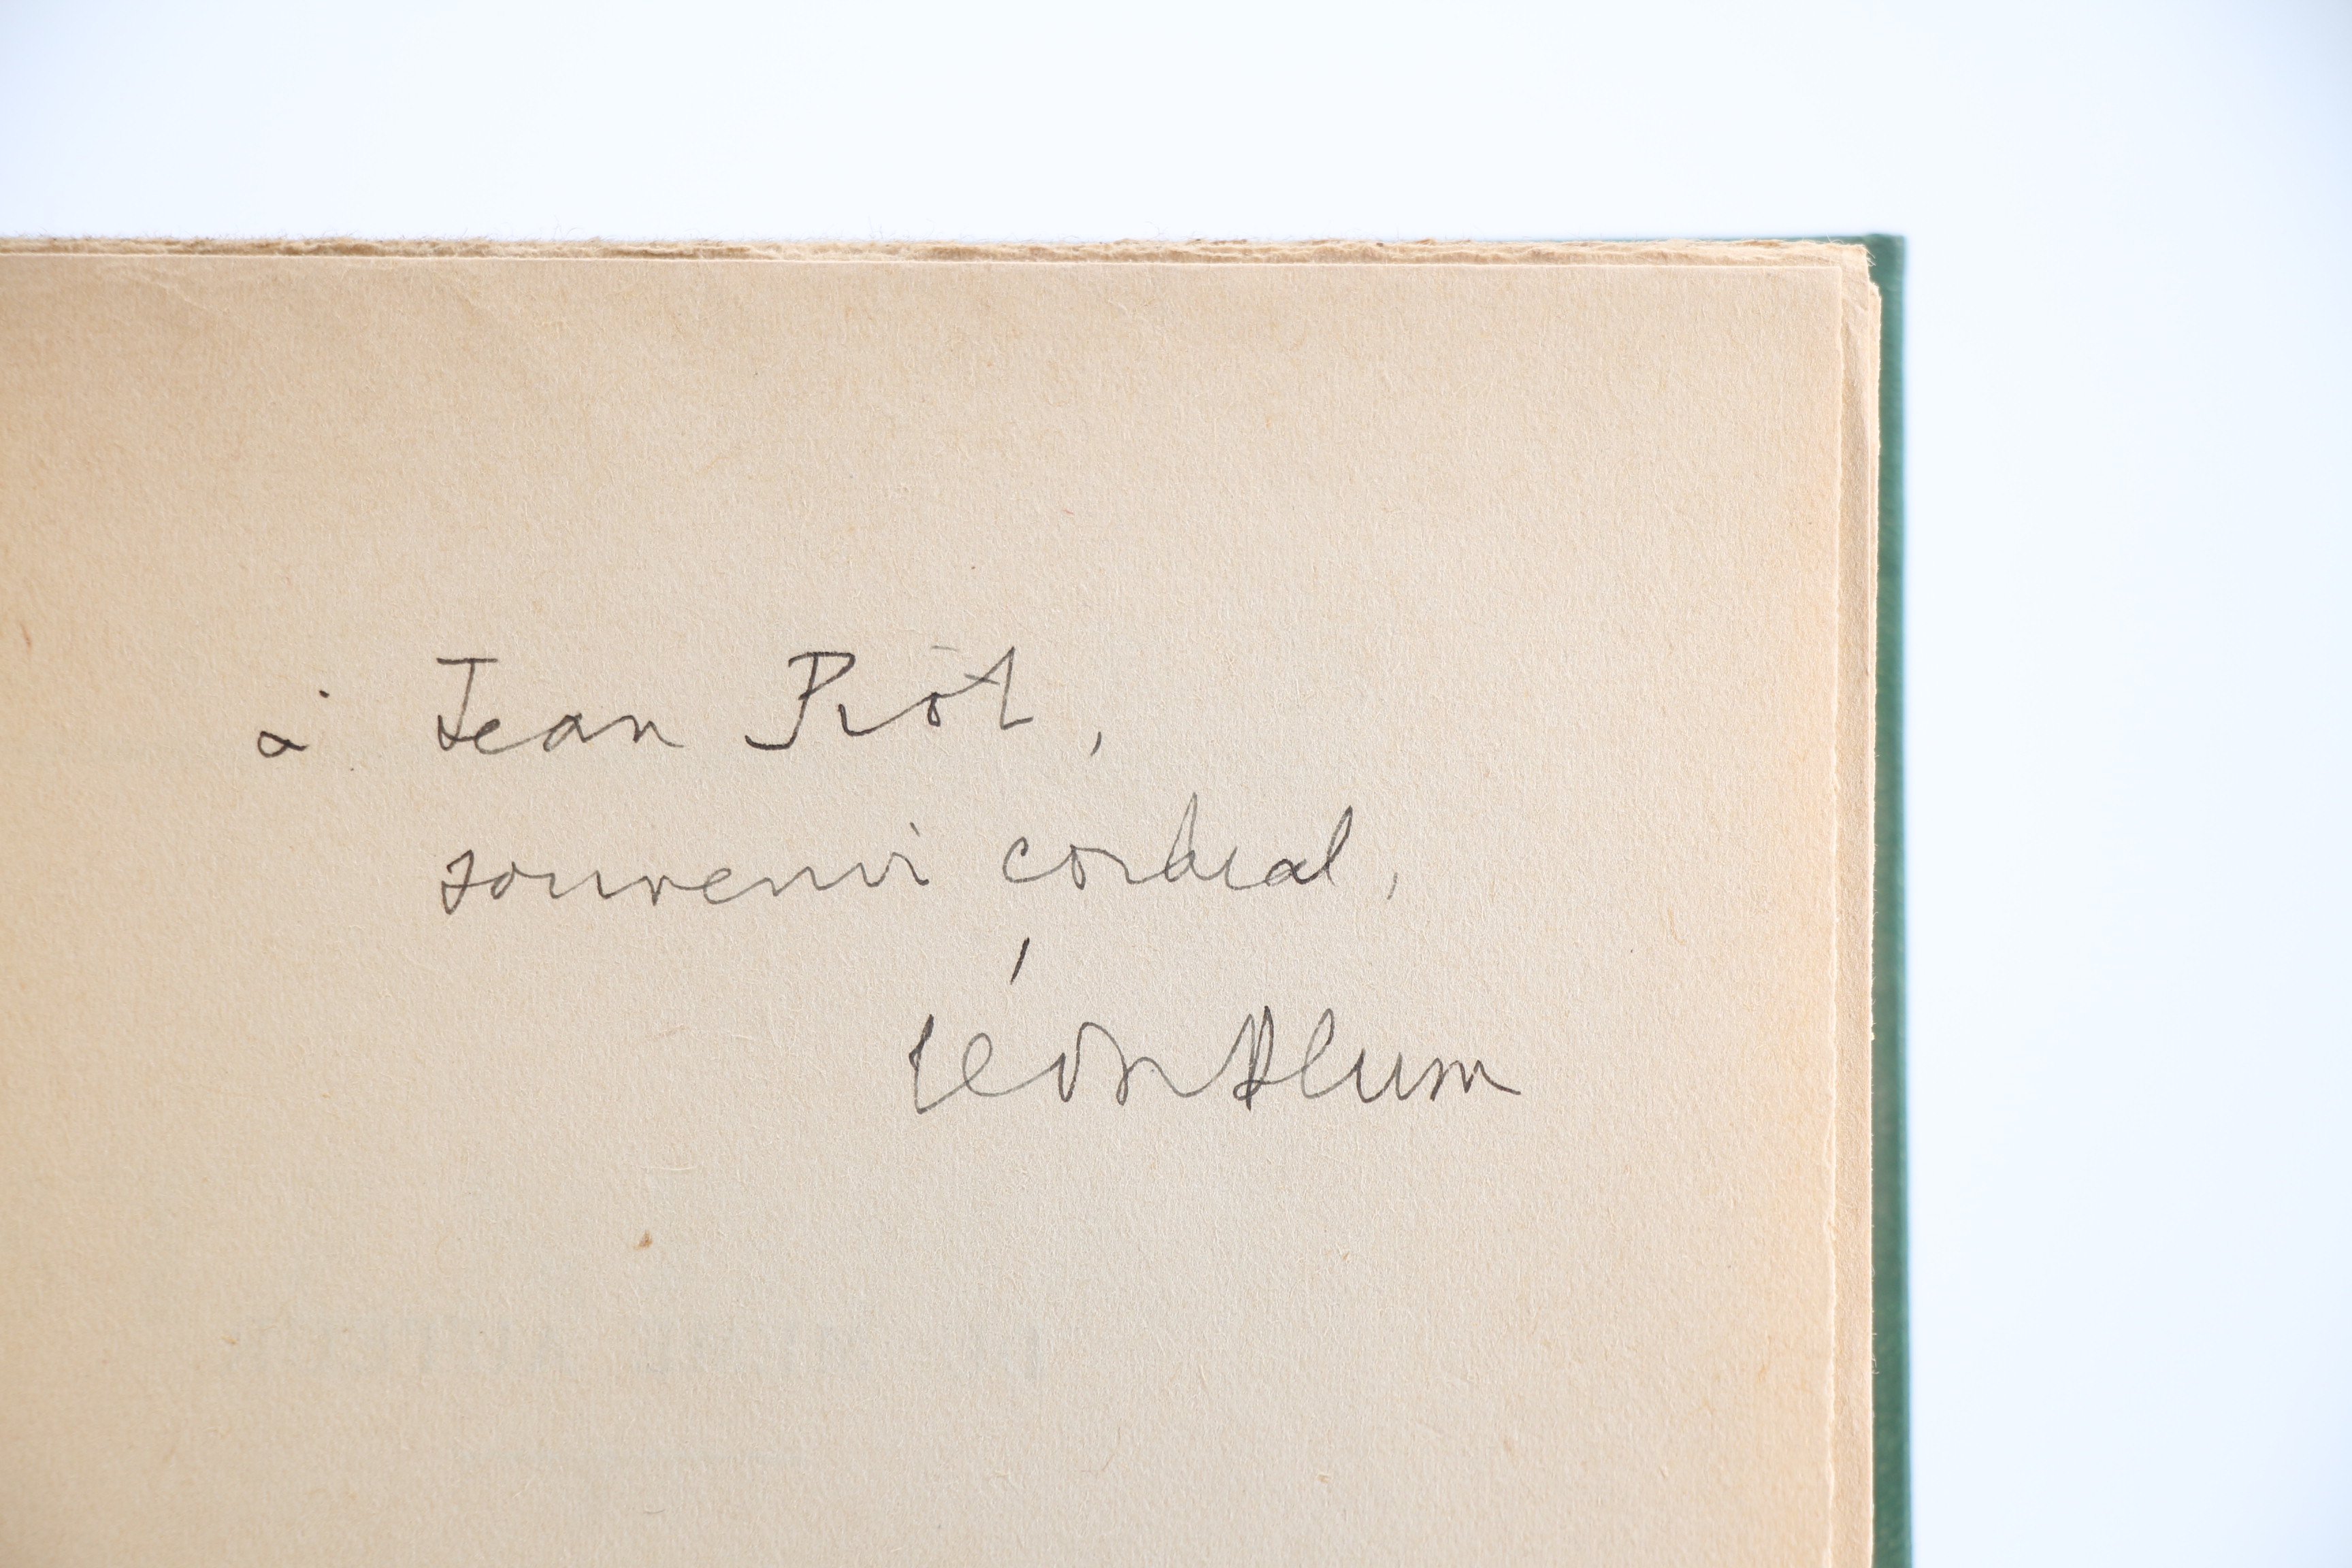 à Jean Piot,
souvenir cordial,
Léon Blum